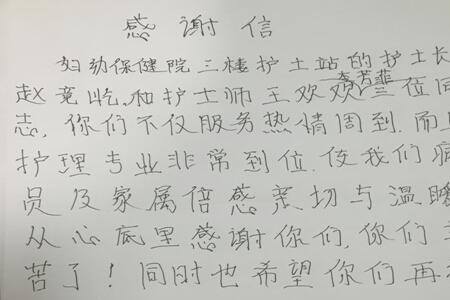 感谢信
妇幼保健院三楼护士站的护士长
赵竟屹和护士师王欢欢李芳菲三位同
志,你们不仅服务热情周到.而且
护理专业非常到位.使我们病
员及家属倍感亲切与温暖
从心底里感谢你们,你们
苦了!同时也希望你们再